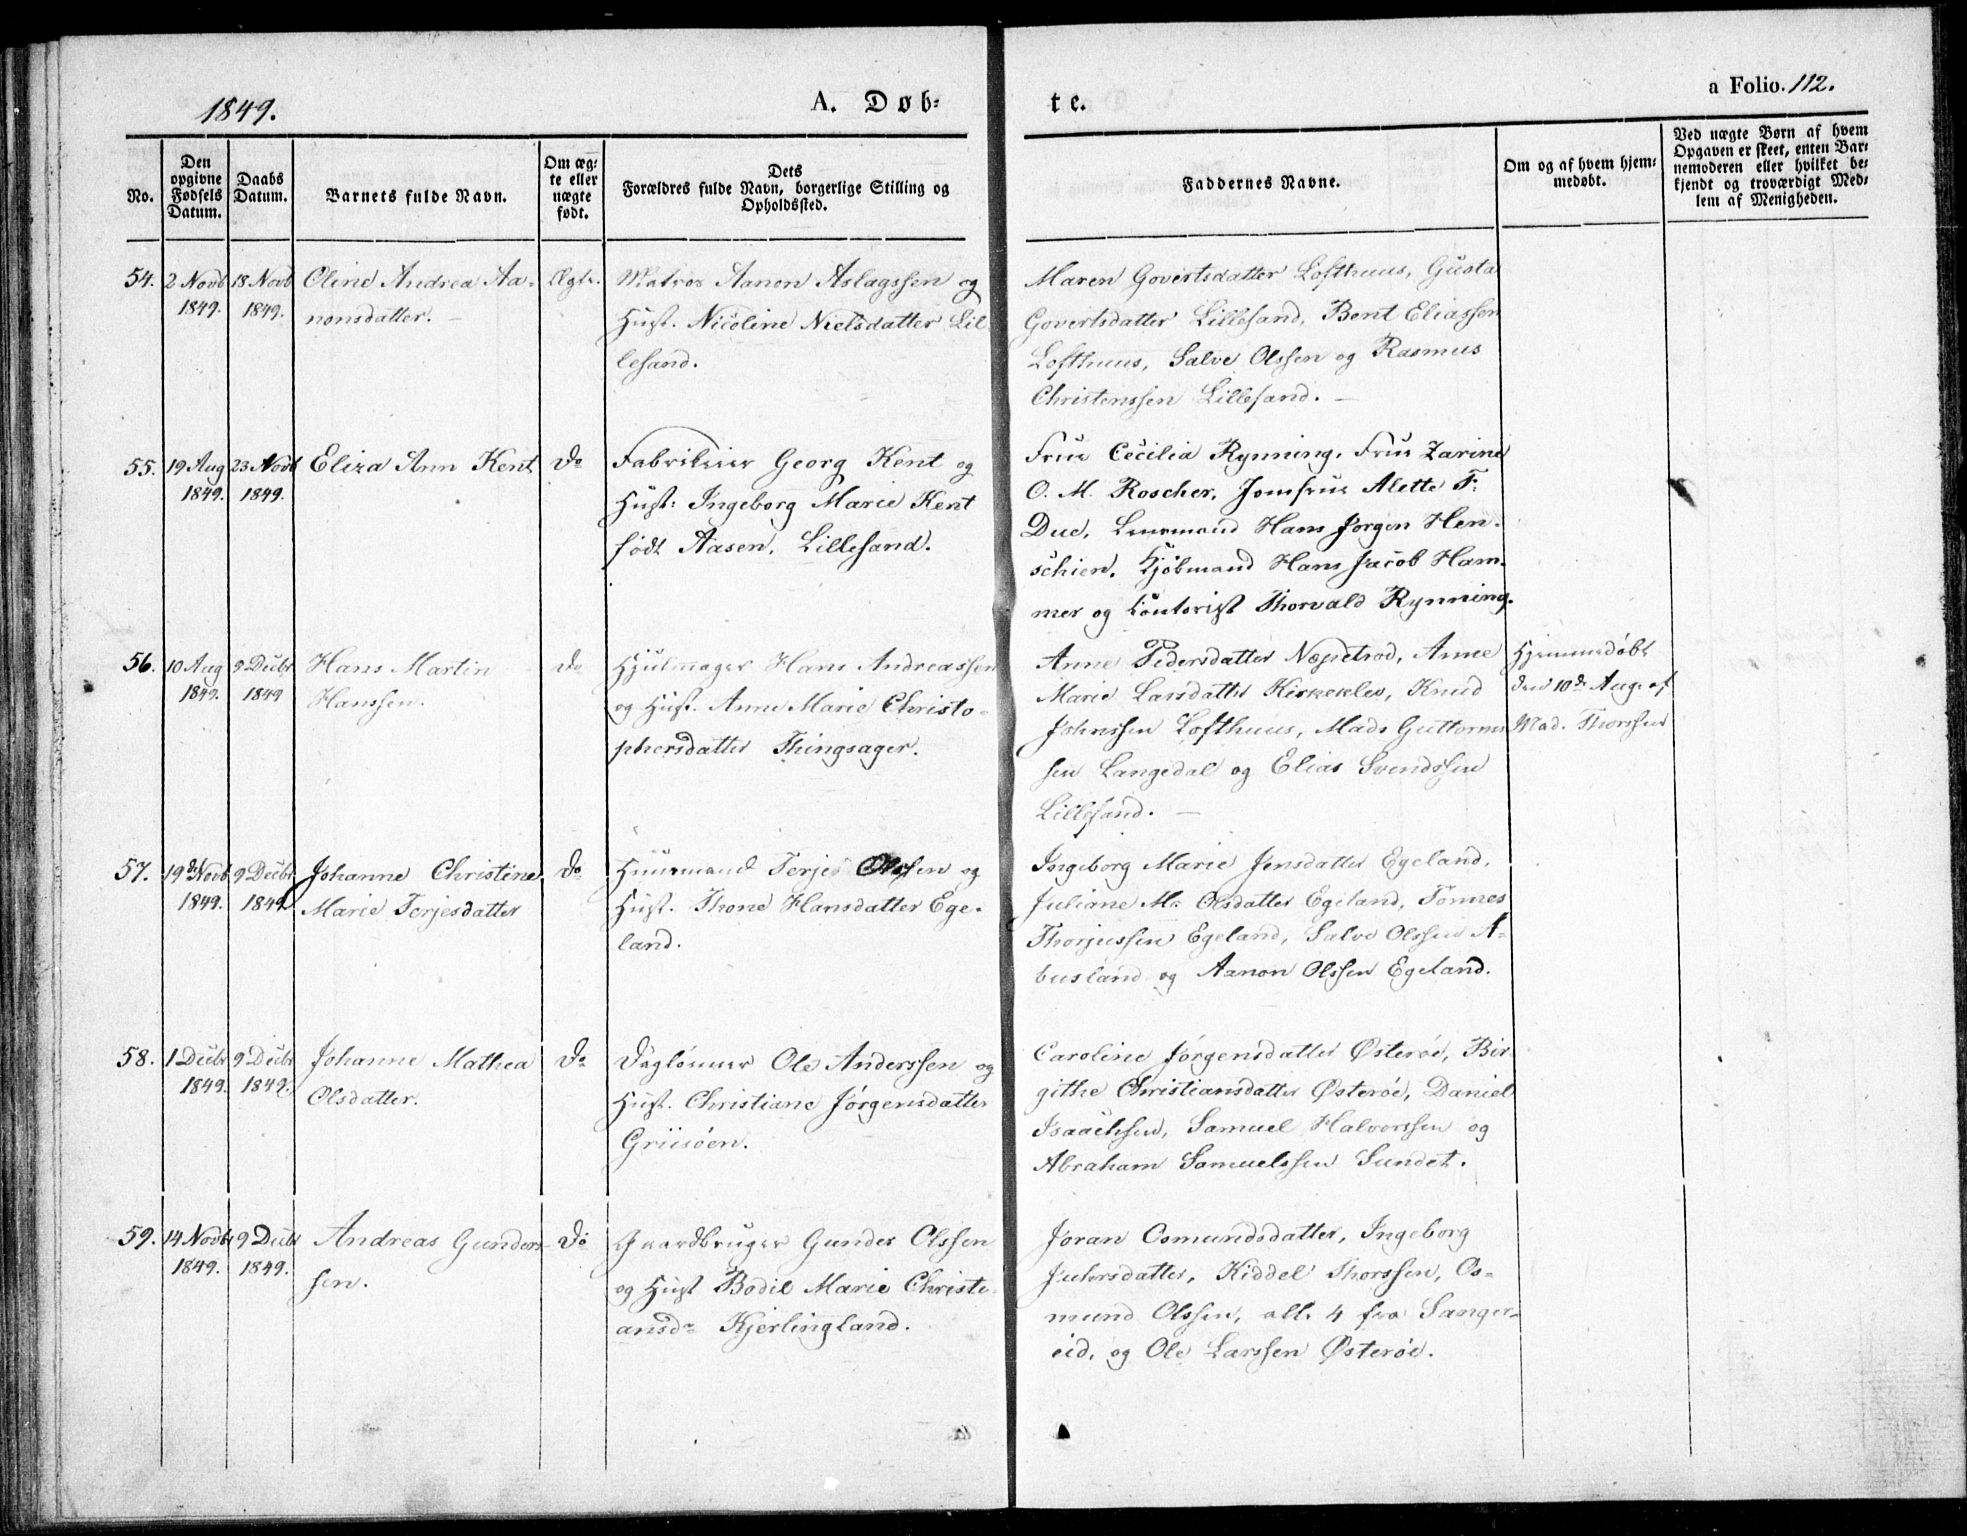 1849.
A. Døb-
te.
a Folio. 112.
No.
Den opgivne Fødsels Datum.
Daabs Datum.
Barnets fulde Navn.
Om ægte eller uægte født.
Dets Forældres fulde Navn, borgerlige Stilling og Opholdssted.
Faddernes Navne.
Om og af hvem hjemmedøbt.
Ved uægte Børn af hvem Opgaven er skeet, enten Barnemoderen eller hvilket bekjendt og troværdigt Medlem af Menigheden.
54. 2 Novb 18 Novb Oline Andrea Aa- Ægte. Matros Aanon Aslagssen og
1849. 1849. nonsdatter. – Hust. Nicoline Nielsdatter Lil
lesand.
Maren Govertsdatter Lofthuus, Gusta
Govertsdatter Lillesand, Bent Eliassen
Lofthuus, Salve Olssen og Rasmus
Christenssen Lillesand. –
55. 19 Aug 23 Novb Eliza Ann Kent Do Fabrikeier Georg Kent og
1849. 1849. Hust: Ingeborg Marie Kent
født Aasen, Lillesand.
Frue Cecilia Rynning, Frue Zarine
O. M. Roscher, Jomfrue Alette F:
Due, Lensmand Hans Jørgen Hen-
schien, Kjöbmand Hans Jacob Ham-
mer og Contorist Thorvald Rynning.
56. 10 Aug 9 Decbr Hans Martin Do Hjulmager Hans Andreassen
1849. 1849 Hanssen. og Hust. Anne Marie Christo-
phersdatter Thingsager.
Anne Pedersdatter Næpetrod, Anne
Marie Larsdatter Kirkeklev, Knud
Johnssen Lofthuus, Mads Guttorms
sen Langedal og Elias Svendssen
Lillesand. –
Hjemmedøbt
den 10de Aug. af
Mad. Thorssen
57. 19de Novb 9 Decbr Johanne Christine Do Huusmand Terjes Olssen og
1849. 1849. Marie Terjesdatter Hust. Thone Hansdatter Ege-
land.
Ingeborg Marie Jensdatter Egeland,
Juliane M: Olsdatter Egeland, Tønnes
Thorjussen Egeland, Salve Olssen A-
busland og Aanon Olssen Egeland.
58. 1 Decbr 9 Decbr Johanne Mathea Do Daglønner Ole Anderssen og
1849. 1849. Olsdatter. Hust. Christiane Jørgensdatter
Griisöen.
Caroline Jørgensdatter Østeröe, Bir-
githe Christiansdatter Østeröe, Daniel
Isaachsen, Samuel Halvorssen og
Abraham Samuelssen Sundet.
59. 14 Novbr 9 Decbr Andreas Gunders- Do Gaardbruger Gunder Olssen
1849. 1849. sen. og Hust Bodil Marie Christi-
ansdr Kjerlingland.
Joran Osmundsdatter, Ingeborg
Kiddel Thorssen, Os-
mund Olssen, all. 4 fra Sanger-
eid, og Ole Larssen Østeröe.